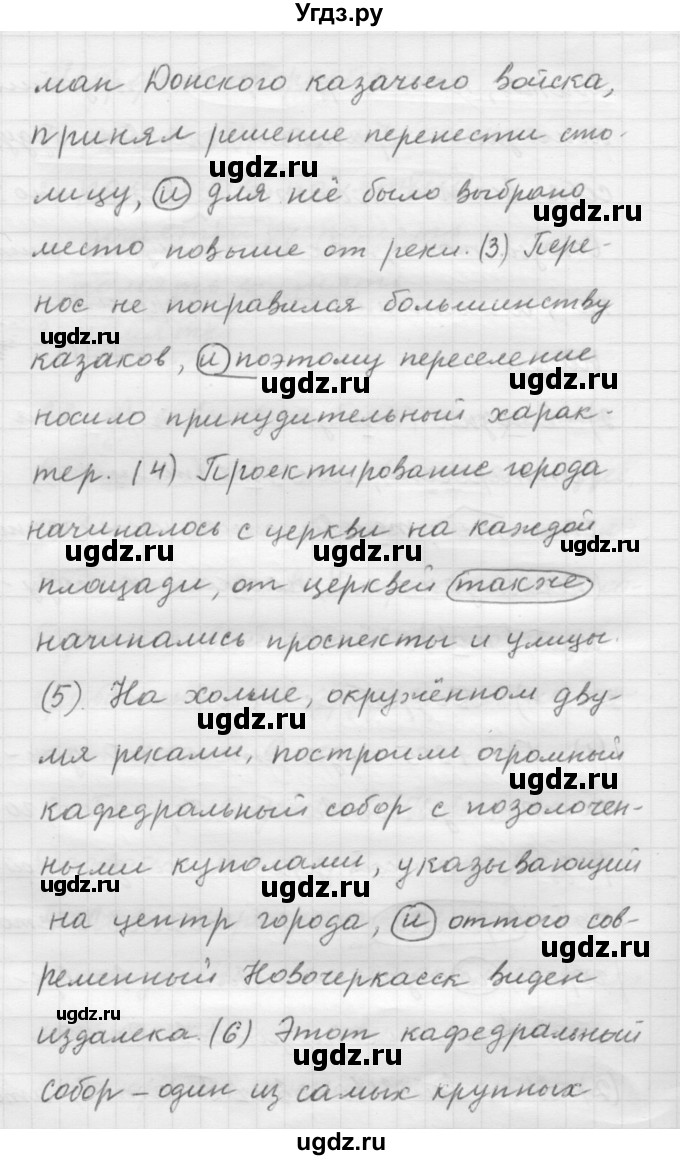 Угдз.ру
ман Донского казачьего войска,
принял решение перенести сто-
ugdz.ru
лицу, и для неё было выбрано
ugdz.ru ugdz.ru
место повыше от реки. (3) Пере-
нос не понравился большинству
ugdz.ru
казаков, и поэтому переселение
ugdz.ru ugdz.ru
носило принудительный харак-
тер. (4) Проектирование города
начиналось с церкви на каждой
ugdz.ru ugdz.ru ugdz.ru
площади, от церквей также
начинались проспекты и улицы.
(5). На холме, окружённом дву-
ugdz.ru
мя реками, построили огромный
ugdz.ru
кафедральный собор с позолочен-
ными куполами, указывающий
ugdz.ru ugdz.ru
на центр города, и оттого сов-
ugdz.ru
ременный Новочеркасск виден
ugdz.ru
издалека. (6) Этот кафедральный
ugdz.ru
собор – один из самых крупных
ugdz.ru